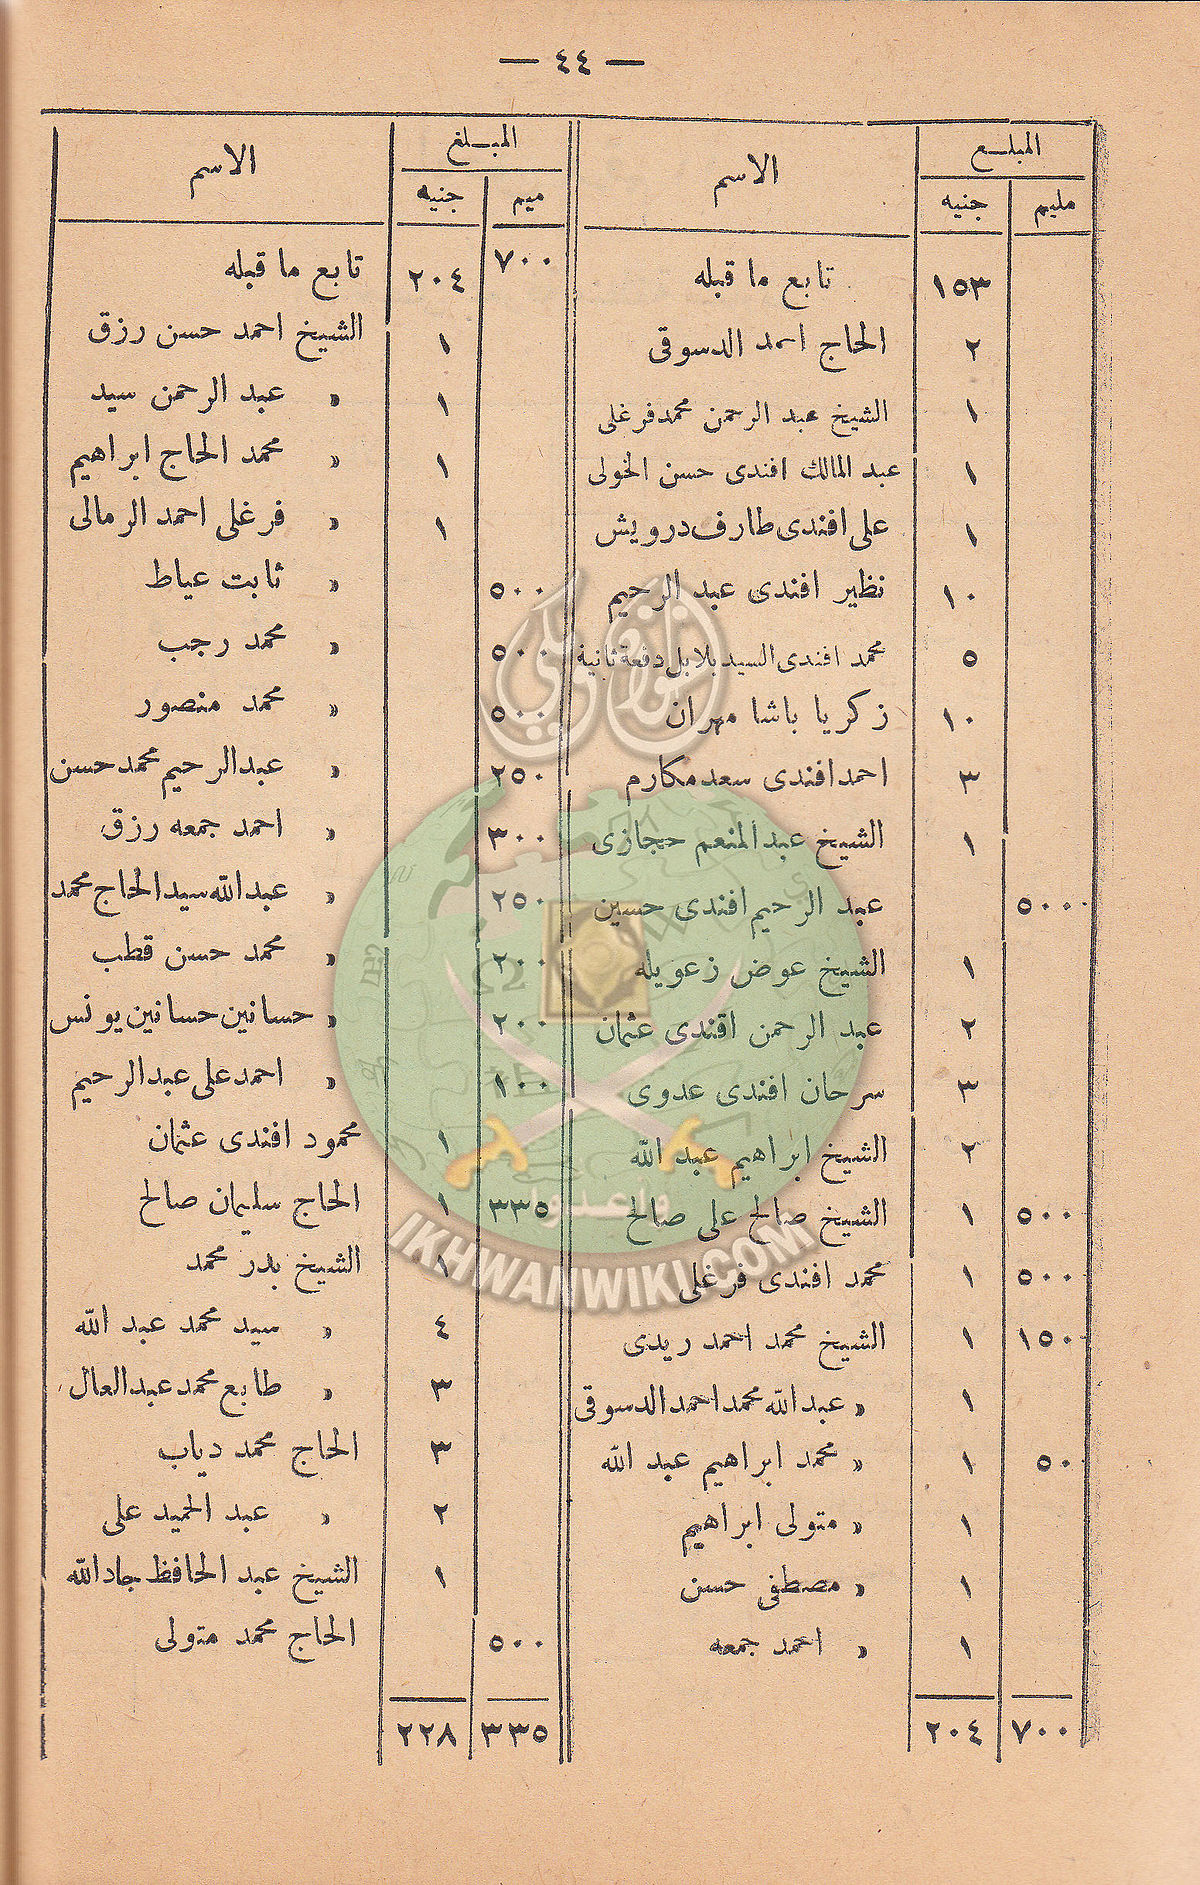 — ٤٤ —
المبلغ الاسم
مليم جنيه
١٥٣ تابع ما قبله
٢ الحاج احمد الدسوقى
١ الشيخ عبد الرحمن محمد فرغلى
١ عبد المالك افندى حسن الخولى
١ على افندى طارف درويش
١٠ نظير افندى عبد الرحيم
٥ محمد افندى السيد بلابل دفعة ثانية
١٠ زكريا باشا مهران
٣ احمد افندى سعد مكارم
١ الشيخ عبد المنعم حجازى
٥٠٠ عبد الرحيم افندى حسين
١ الشيخ عوض زعويله
٢ عبد الرحمن افندى عثمان
٣ سرحان افندى عدوى
٢ الشيخ ابراهيم عبد الله
٥٠٠ ١ الشيخ صالح على صالح
٥٠٠ ١ محمد افندى فرغلى
١٥٠ ١ الشيخ محمد احمد ريدى
١ » عبد الله محمد احمد الدسوقى
٥٠ ١ » محمد ابراهيم عبد الله
١ » متولى ابراهيم
١ » مصطفى حسن
١ » احمد جمعه
٧٠٠ ٢٠٤
المبلغ الاسم
ميم جنيه
٧٠٠ ٢٠٤ تابع ما قبله
١ الشيخ احمد حسن رزق
١ » عبد الرحمن سيد
١ » محمد الحاج ابراهيم
١ » فرغلى احمد الرمالى
٥٠٠ » ثابت عياط
٥٠٠ » محمد رجب
٥٠٠ » محمد منصور
٢٥٠ » عبد الرحيم محمد حسن
٣٠٠ » احمد جمعه رزق
٢٥٠ » عبد الله سيد الحاج محمد
٢٠٠ » محمد حسن قطب
٢٠٠ » حسانين حسانين يونس
١٠٠ » احمد على عبد الرحيم
١ محمود افندى عثمان
٣٣٥ ١ الحاج سليمان صالح
١ الشيخ بدر محمد
٤ » سيد محمد عبد الله
٣ » طابع محمد عبد العال
٣ الحاج محمد دياب
٢ » عبد الحميد على
١ الشيخ عبد الحافظ جاد الله
٥٠٠ الحاج محمد متولى
٣٣٥ ٢٢٨
IKHWANWIKI.COM